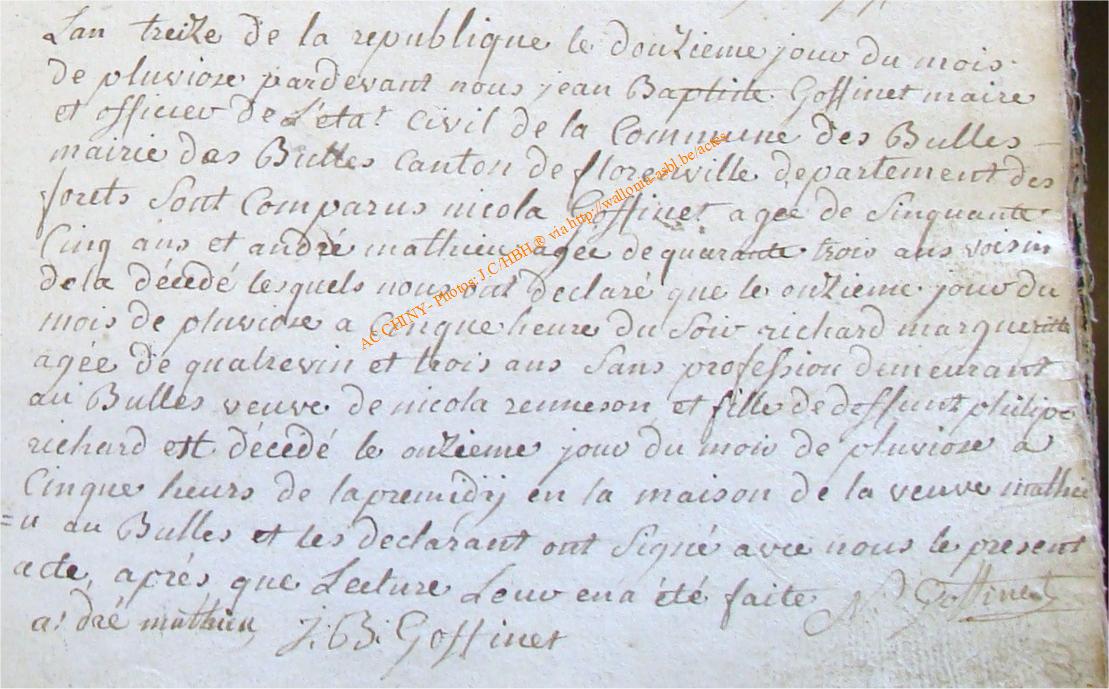 Lan treize de la republique le douzieme jour du mois
de pluviose pardevant nous jean Baptiste Goffinet maire
et officier de L'état Civil de la Commune des Bulles
mairie des Bulles Canton de florenville departement des
forets Sont Comparus nicola Goffinet agée de Sinquante
Cinq ans et andré mathieu agée de quarante trois ans voisin
de la décédé lesquels nous ont declaré que le onzieme jour du
mois de pluviose a Cinque heure du Soir richard margueritte
agée de quatrevin et trois ans Sans profession demeurant
au Bulles veuve de nicola renneson et fille de deffunt philipe
richard est décédé le onzieme jour du mois de pluviose a
Cinque heurs de lapremidij en la maison de la veuve mathie
=u au Bulles et les declarant ont Signé avec nous le present
acte, aprés que Lecture Leur en a été faite N. Goffinet
a. dré mathieu J: B: Goffinet
AC CHINY - Photos: J.C/HBH® via http://wallonia-asbl.be/actes